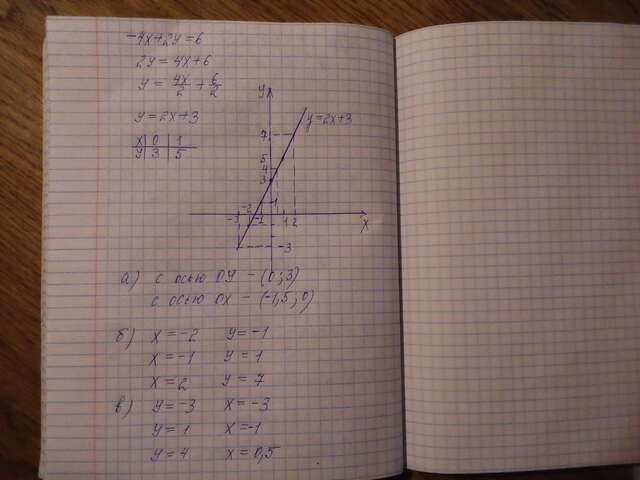 -4x+2y=6
2y = 4x+6
y = 4x/2 + 6/2
y = 2x+3
x | 0 | 1
y | 3 | 5
y
y=2x+3
7
5
4
3
1
-3 -2 -1 1 2
x
-3
а) с осью OY - (0; 3)
с осью OX - (-1,5; 0)
б) x = -2 y = -1
x = -1 y = 1
x = 2 y = 7
в) y = -3 x = -3
y = 1 x = -1
y = 4 x = 0,5